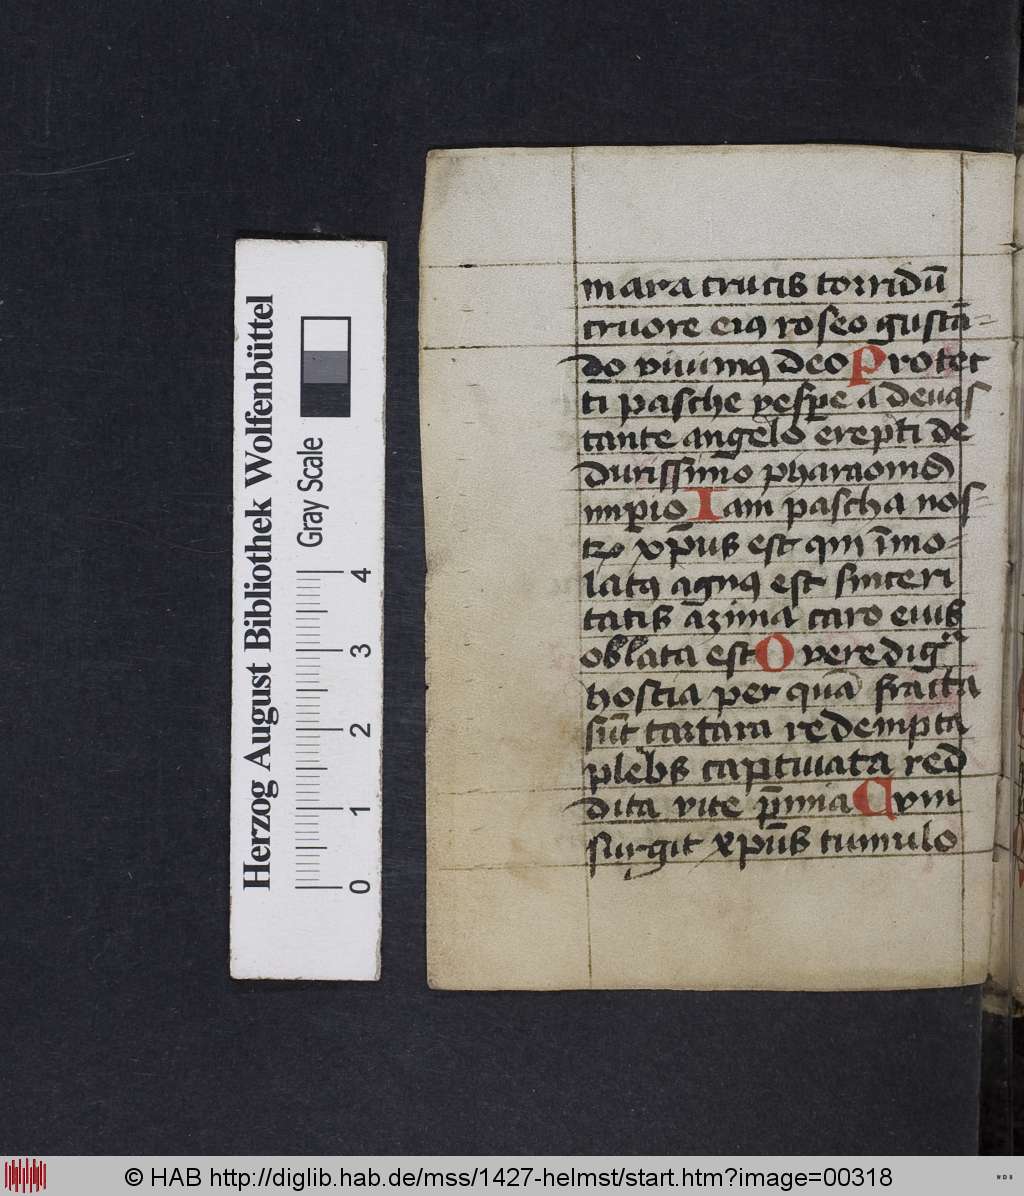 Herzog August Bibliothek Wolfenbüttel
Gray Scale
0 1 2 3 4
in ara crucis torridū
cruore eiꝯ roseo gustā-
do viuimꝯ deo Protec
ti pasche vesꝑe a deuas
tante angelo erepti de
durissimo pharaonis
imꝑio Iam pascha nos-
trū xp̄us est qui īmo-
latꝯ agnꝯ est sinceri
tatis azima caro eius
oblata est O vere digͣ
hostia per quā fracta
sūt tartara redempta
plebs captiuata red
dita vite p̄mia Cum
surgit xp̄us tumulo
© HAB http://diglib.hab.de/mss/1427-helmst/start.htm?image=00318